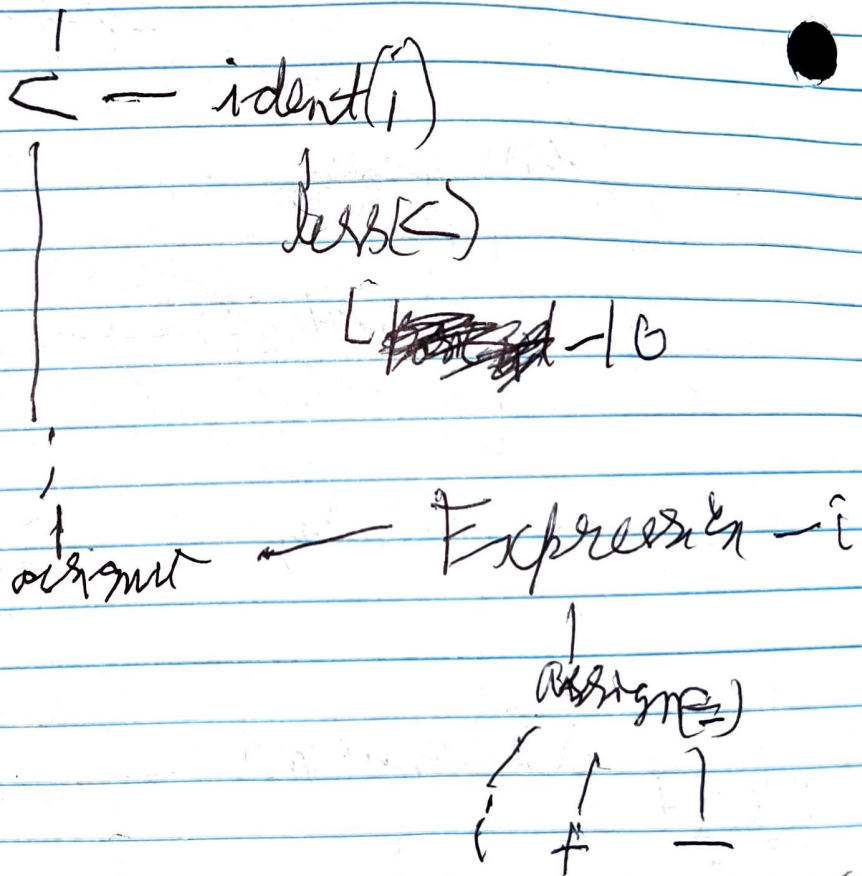 < — ident(i)
less(<)
- 10
;
assignt — Expression - i
assign(=)
i + —